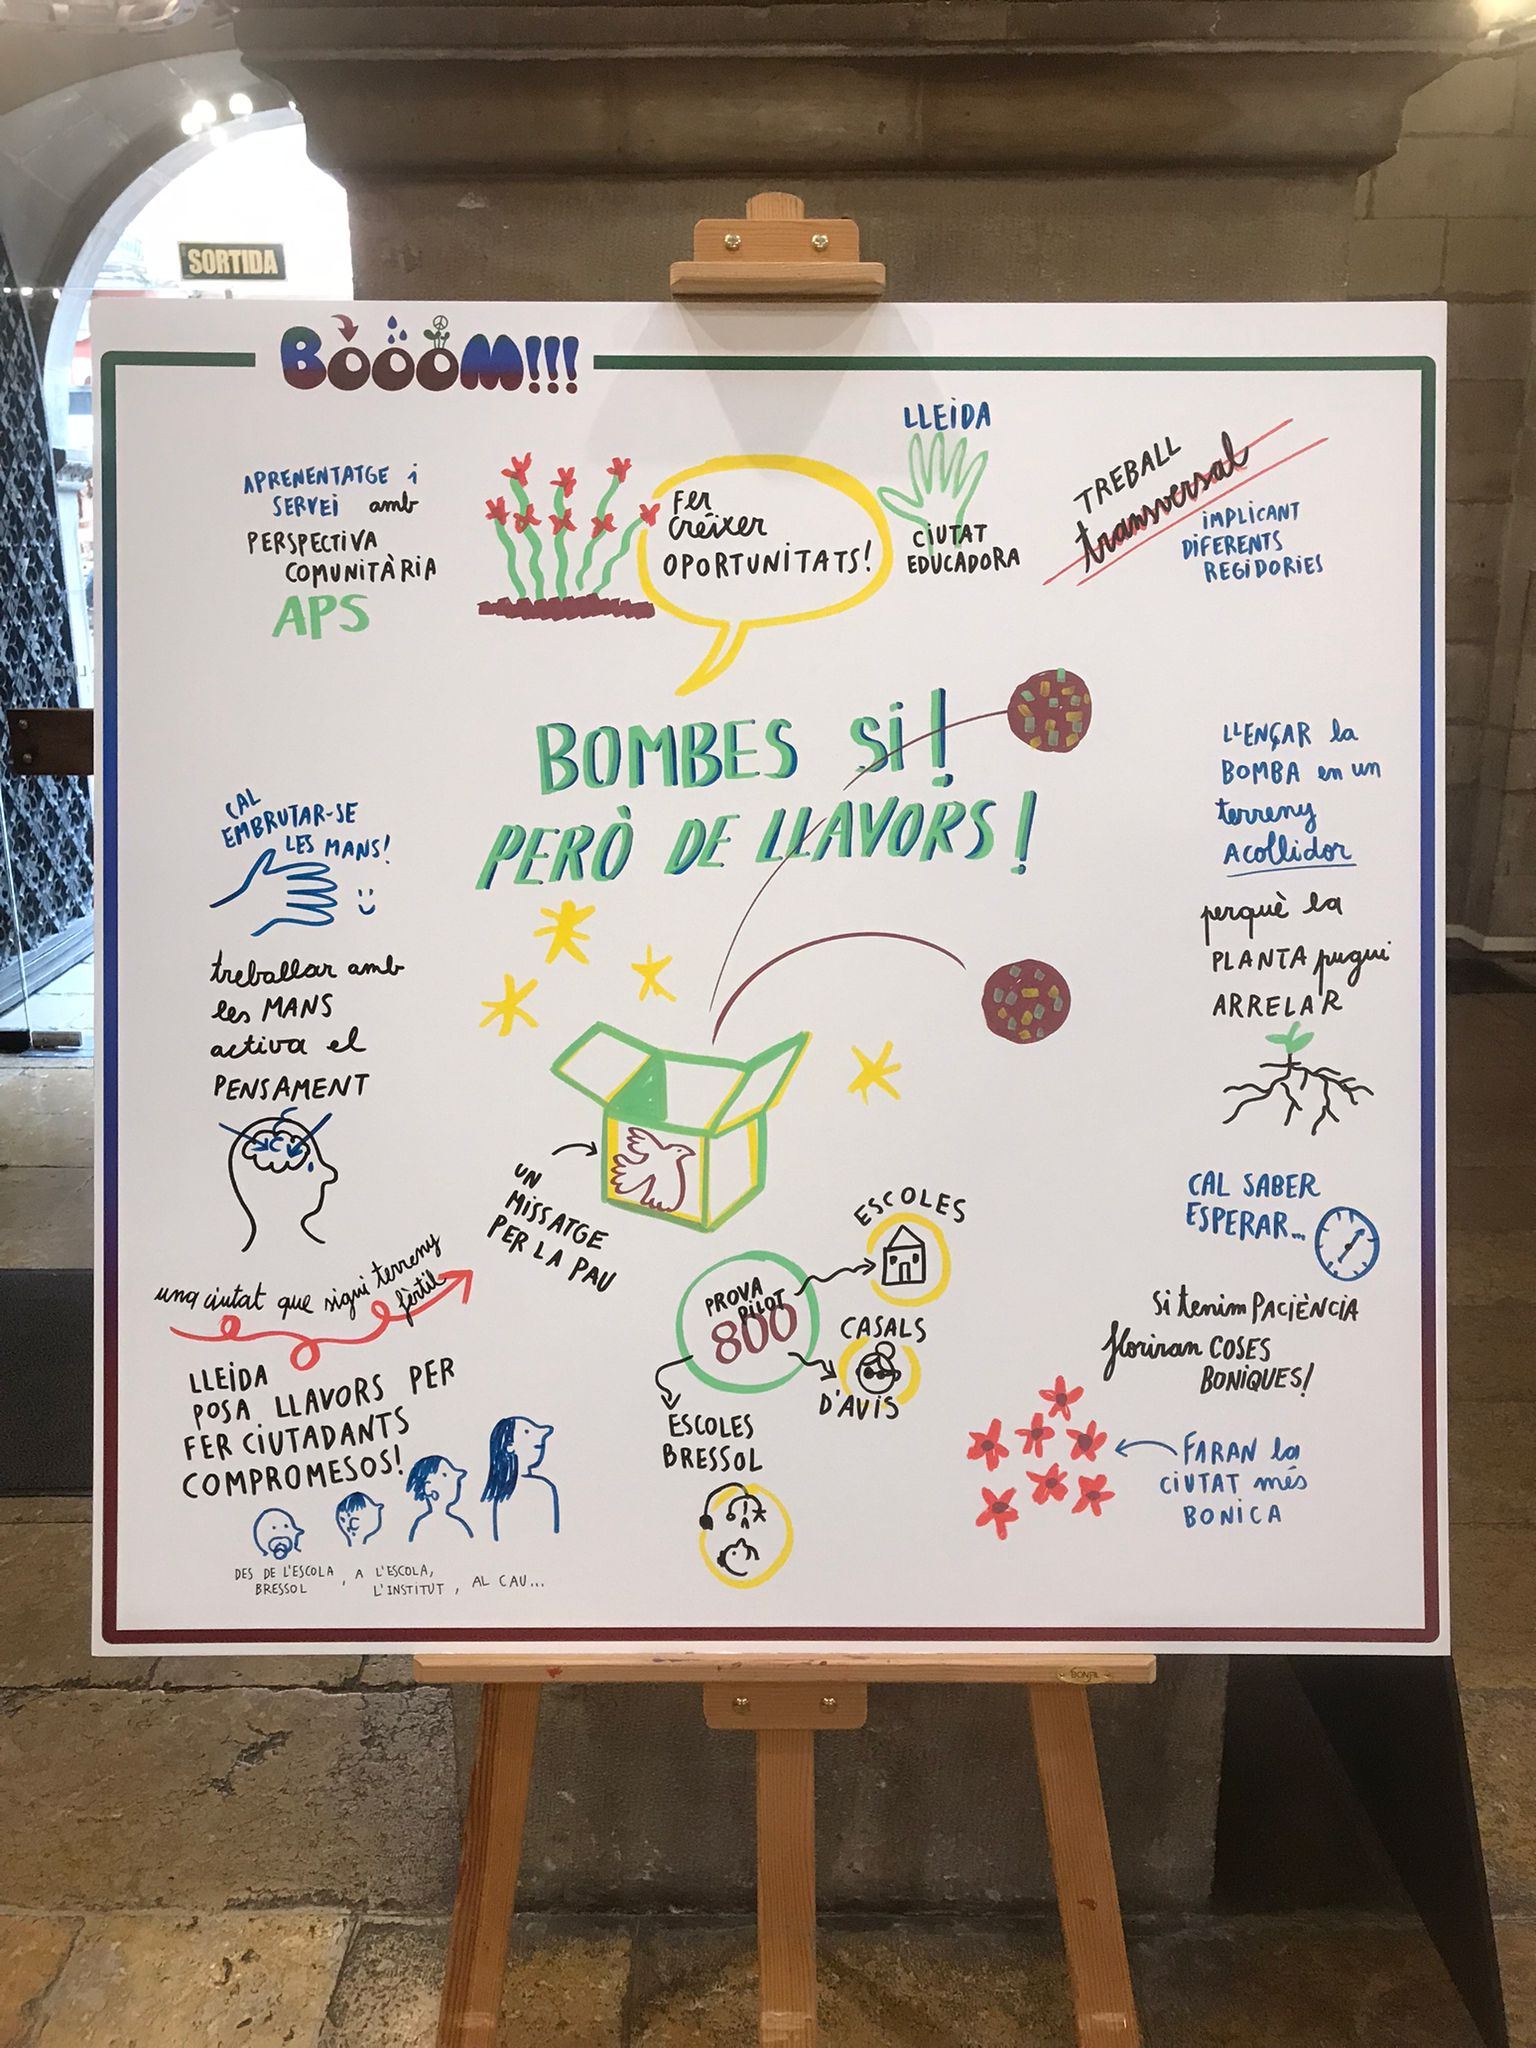 SORTIDA
BOOOM!!!
APRENENTATGE i
SERVEI amb
PERSPECTIVA
COMUNITÀRIA
APS
Fer
Créixer
OPORTUNITATS!
LLEIDA
CIUTAT
EDUCADORA
TREBALL
transversal
IMPLICANT
DIFERENTS
REGIDORIES
BOMBES SI!
PERÒ DE LLAVORS!
LLENÇAR la
BOMBA en un
terreny
Acollidor
perquè la
PLANTA pugui
ARRELAR
CAL
EMBRUTAR-SE
LES MANS!
treballar amb
les MANS
activa el
PENSAMENT
UN
MISSATGE
PER LA PAU
CAL SABER
ESPERAR...
Si tenim PACIÈNCIA
floriran COSES
BONIQUES!
FARAN la
CIUTAT més
BONICA
ESCOLES
PROVA
PILOT
800
CASALS
D'AVIS
ESCOLES
BRESSOL
una ciutat que sigui terreny
fèrtil
LLEIDA
POSA LLAVORS PER
FER CIUTADANTS
COMPROMESOS!
DES DE L'ESCOLA
BRESSOL
, A L'ESCOLA,
L'INSTITUT, AL CAU...
BONFIL